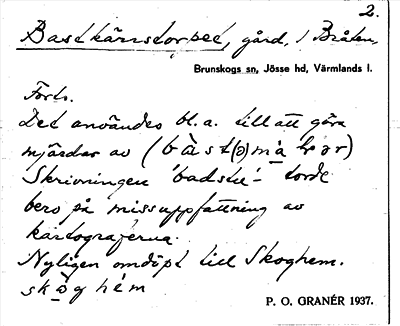 2.
Bastkärrstorpet, gård, i Bråten,
Brunskogs sn, Jösse hd, Värmlands l.
Forts.
Det användes bl.a. till att göra
mjärdar av (bàst(ə)mä̀rər)
Skrivningen 'badstu'- torde
bero på missuppfattning av
kartograferna.
Nyligen omdöpt till Skoghem.
skọ̀g hém
P. O. GRANÉR 1937.